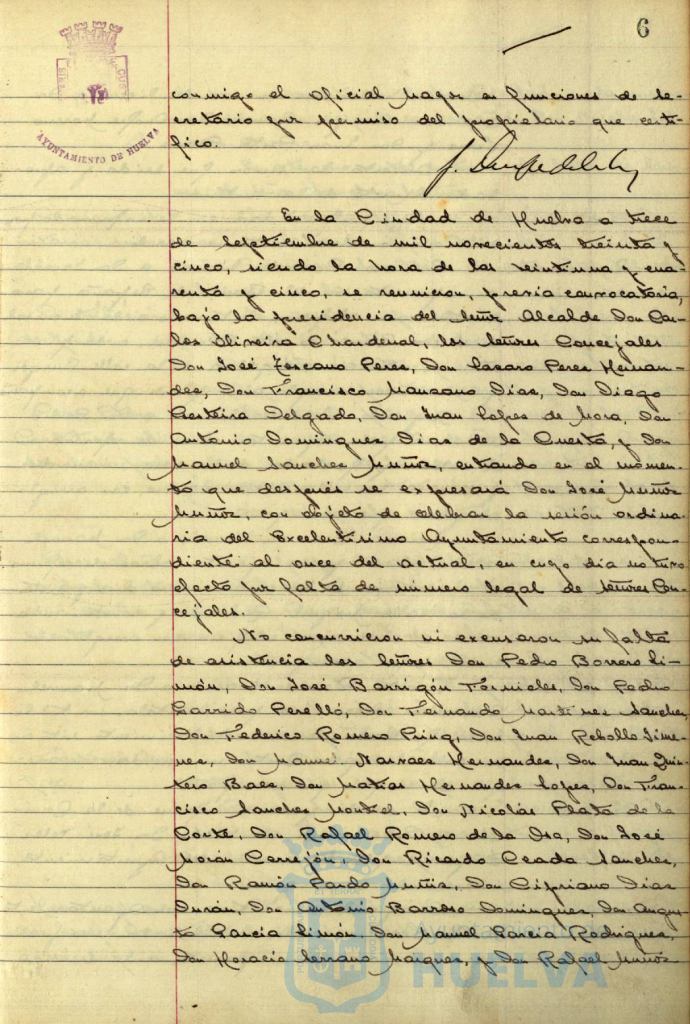 6
AYUNTAMIENTO DE HUELVA
conmigo el Oficial Mayor en funciones de se-
cretario por permiso del propietario que certi-
fico.
En la Ciudad de Huelva a trece
de Septiembre de mil novecientos treinta y
cinco, siendo la hora de las veintiuna y cua-
renta y cinco, se reunieron, previa convocatoria,
bajo la presidencia del Señor Alcalde Don Car-
los Oliveira Chardenal, los Señores Concejales
Don José Toscano Peres, Don Lazaro Peres Hernan-
des, Don Francisco Manzano Dias, Don Diego
Delgado, Don Juan Lopes de Mora, Don
Antonio Domingues Dias de la Cuesta, y Don
Manuel Sanches Muñoz, entrando en el momen-
to que después se expresará Don José Muñoz
Muñoz, con objeto de celebrar la sesión ordina-
ria del Excelentísimo Ayuntamiento correspon-
diente al once del actual, en cuyo dia no tuvo
efecto por falta de número legal de Señores Con-
cejales.
No concurrieron ni excusaron su falta
de asistencia los Señores Don Pedro Borrero Li-
món, Don José Barrigón Fornieles, Don Pedro
Garrido Perelló, Don Fernando Martines Sanches,
Don Federico Romero Don Juan Rebollo Jime-
nes, Don Manuel Narvaes Hernandes, Don Juan Quin-
tero Baes, Don Matias Hernandes Lopes, Don Fran-
cisco Sanches Montiel, Don Nicolás Plata de la
Corte, Don Rafael Romero de la Osa, Don José
Morán Carrejón, Don Ricardo Ceada Sanches,
Don Ramón Pardo Muñiz, Don Cipriano Dias
Durán, Don Antonio Barroso Domingues, Don Augus-
to Garcia Limón, Don Manuel Garcia Rodrigues,
Don Horacio Serrano Marques, y Don Rafael Muñoz
HUELVA